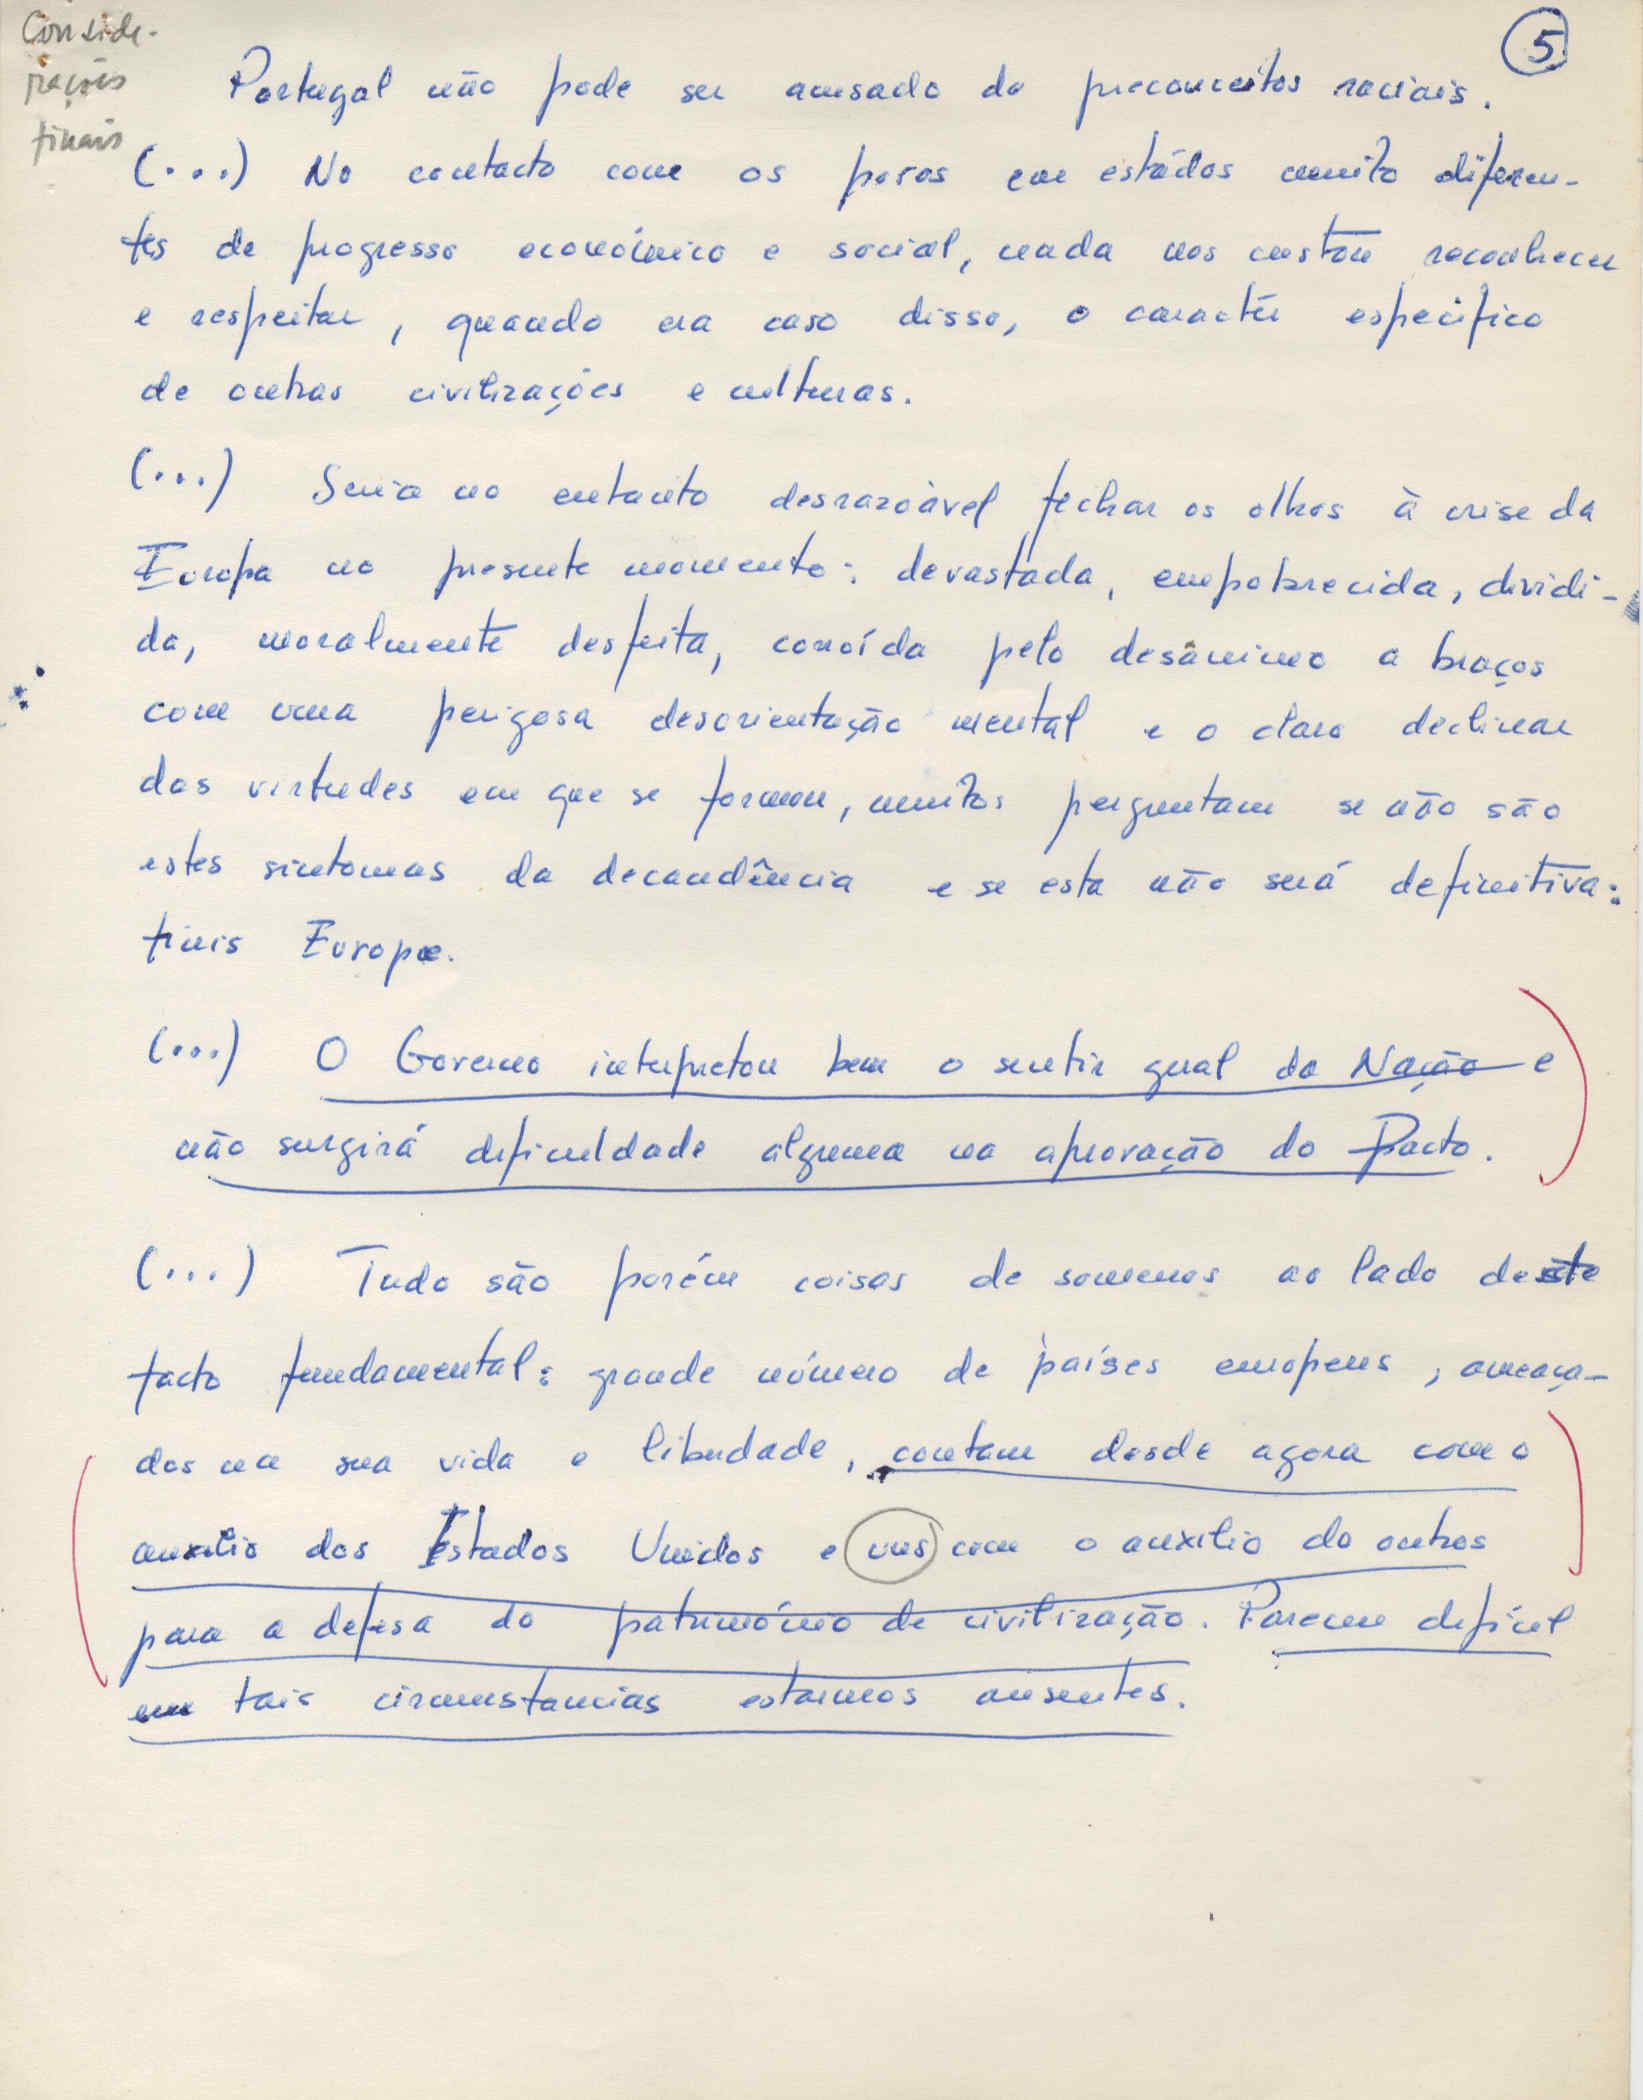 Conside-
rações
finais
5
Portugal não pode ser acusado de preconceitos raciais.
(...) No contacto com os povos em estádos muito diferen-
tes de progresso económico e social, nada nos custou reconhecer
e respeitar, quando era caso disso, o caractér especifico
de outras civilizações e culturas.
(...) Seria no entanto desrazoável fechar os olhos à crise da
Europa no presente momento: devastada, empobrecida, dividi-
da, moralmente desfeita, corroída pelo desânimo a braços
com uma perigosa desorientação mental e o claro declinar
das virtudes em que se formou, muitos perguntam se não são
estes sintomas da decandência e se esta não será definitiva:
finis Europæ.
(...) O Governo interpretou bem o sentir geral da Nação e
não surgirá dificuldade alguma na aprovação do Pacto.
(...) Tudo são porém coisas de somenos ao lado deste
facto fundamental: grande número de países europeus, ameaça-
dos na sua vida e liberdade, contam desde agora com o
auxilio dos Estados Unidos e uns com o auxilio do outros
para a defesa do património de civilização. Pareceu difícil
em tais circunstancias estarmos ausentes.